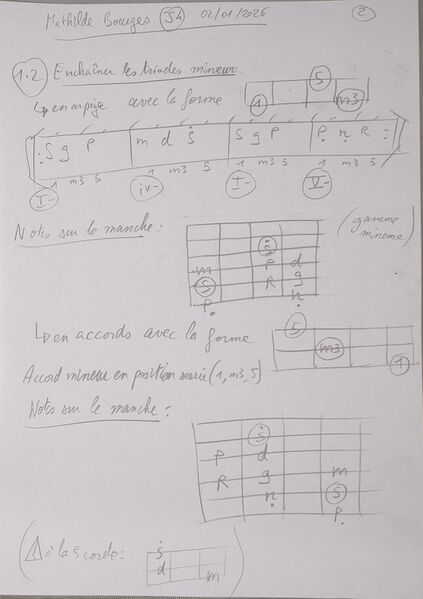 Mathilde Bourges J4 02/01/2026 2
1.2 Enchaîner les triades mineur
↳ en arpège avec la forme 1 5 m3
: S g P | m d ṡ | S g P | P n R :
1 m3 5 1 m3 5 1 m3 5 1 m3 5
I- iv- I- V-
Notes sur le manche : (gamme mineure)
ṡ
m P d
S R g
P n
↳ en accords avec la forme 5 m3 1
Accord mineur en position serrée (1, m3, 5)
Notes sur le manche :
ṡ
P d
R g m
n S
P
(⚠ à la 5 corde : ṡ
d m)